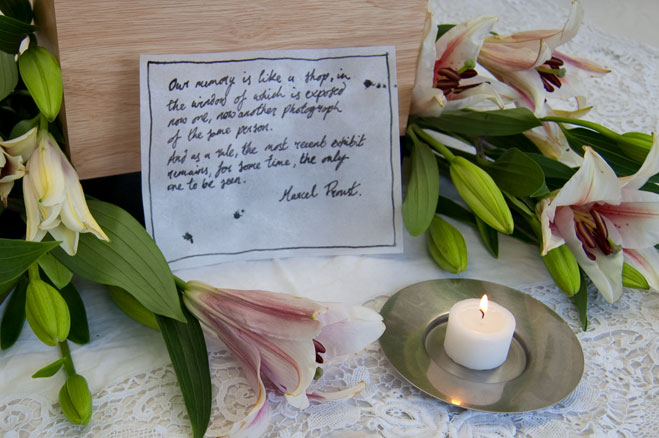 Our memory is like a shop, in
the window of which is exposed
now one, now another photograph
of the same person.
And as a rule, the most recent exhibit
remains, for some time, the only
one to be seen.
Marcel Proust.